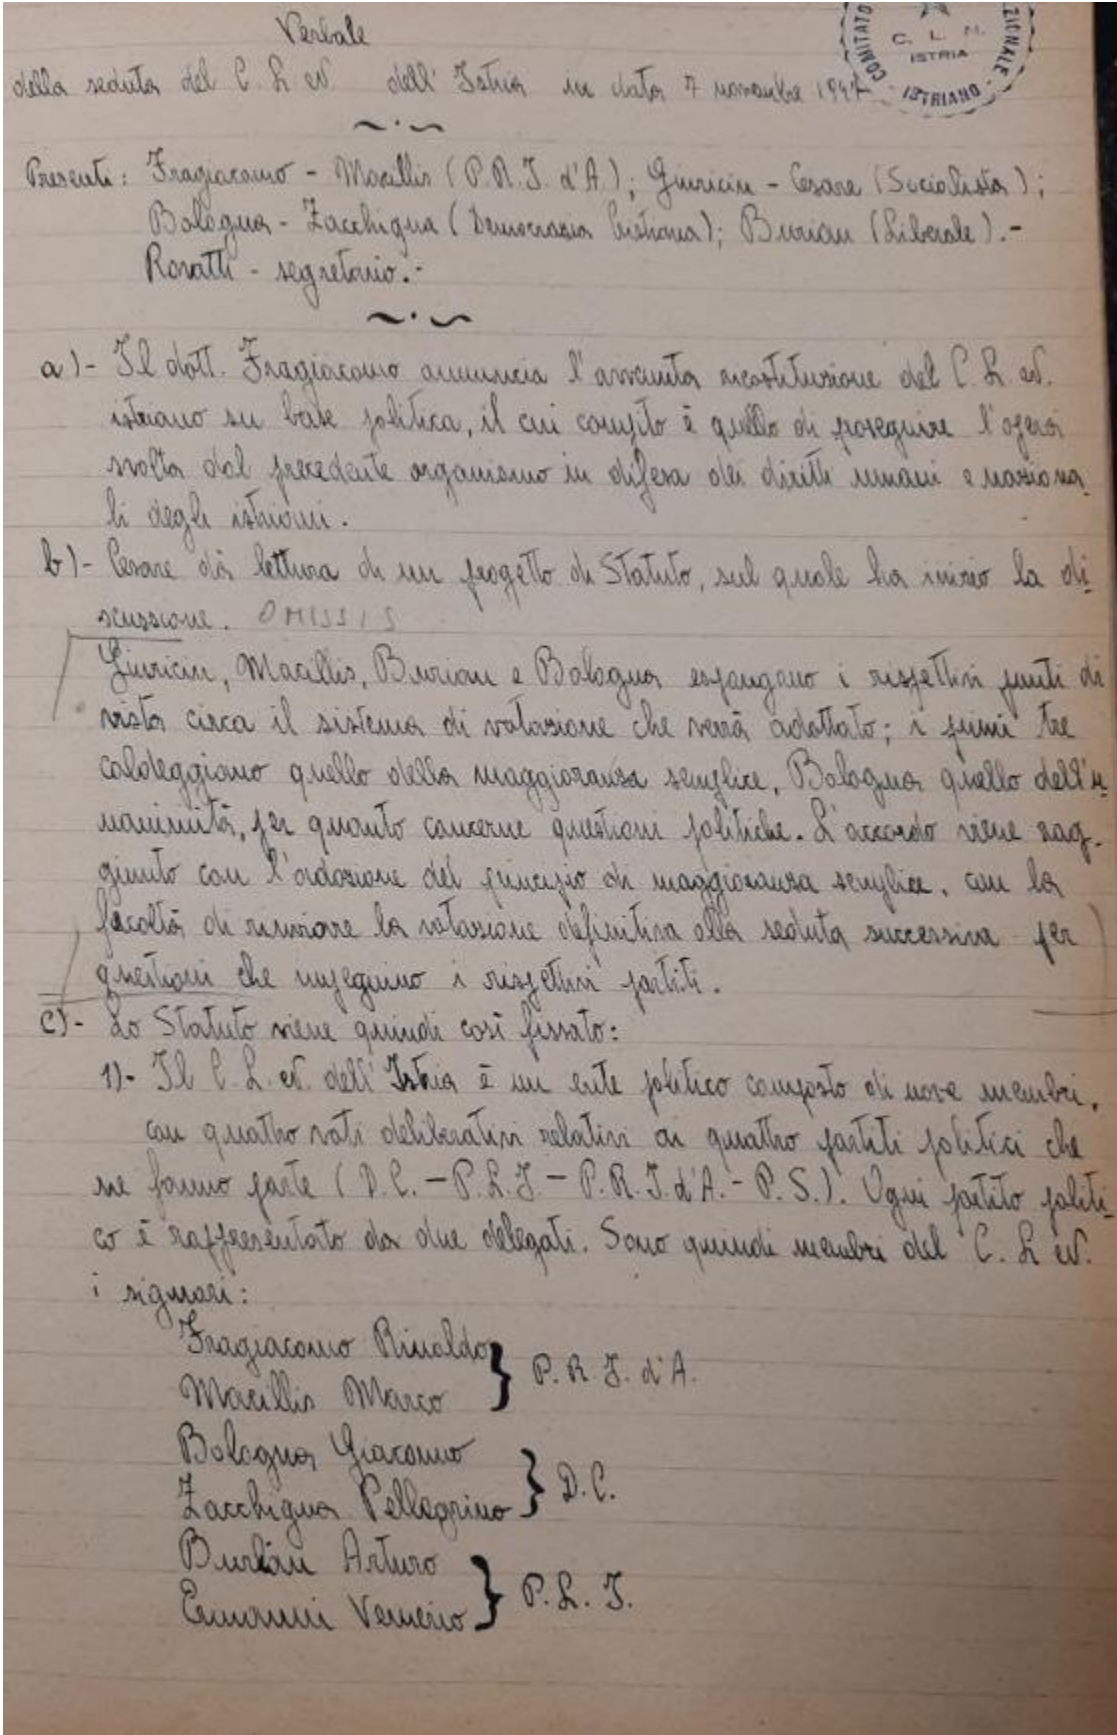 Verbale
della seduta del C. L. N. dell'Istria in data 7 novembre 1947
COMITATO
ZIONALE
ISTRIANO
C. L. N.
ISTRIA
Presenti: Fragiacomo - Macillis (P.R.I. d'A.); Giuricin - Cesare (Socialista);
Bologna - Zacchigna (Democrazia Cristiana); Burian (Liberale).-
Rovatti - segretario.-
a)- Il dott. Fragiacomo annuncia l'avvenuta ricostituzione del C. L. N.
istriano su base politica, il cui compito è quello di proseguire l'opera
svolta dal precedente organismo in difesa dei diritti umani e naziona_
li degli istriani.
b)- Cesare dà lettura di un progetto di Statuto, sul quale ha inizio la di_
scussione. OMISSIS
Giuricin, Macillis, Burian e Bologna espongono i rispettivi punti di
vista circa il sistema di votazione che verrà adottato; i primi tre
caldeggiano quello della maggioranza semplice, Bologna quello dell'u_
nanimità, per quanto concerne questioni politiche. L'accordo viene rag-
giunto con l'adozione del principio di maggioranza semplice, con la
facoltà di rinviare la votazione definitiva alla seduta successiva per
questioni che impegnino i rispettivi partiti.
c)- Lo Statuto viene quindi così fissato:
1)- Il C. L. N. dell'Istria è un ente politico composto di nove membri,
con quattro voti deliberativi relativi ai quattro partiti politici che
ne fanno parte (D.C. - P.L.I. - P.R.I. d'A. - P.S.). Ogni partito politi_
co è rappresentato da due delegati. Sono quindi membri del C. L. N.
i signori:
Fragiacomo Rinaldo
Macillis Marco } P.R.I. d'A.
Bologna Giacomo
Zacchigna Pellegrino } D.C.
Burian Arturo
Ermanni Vernerio } P.L.I.